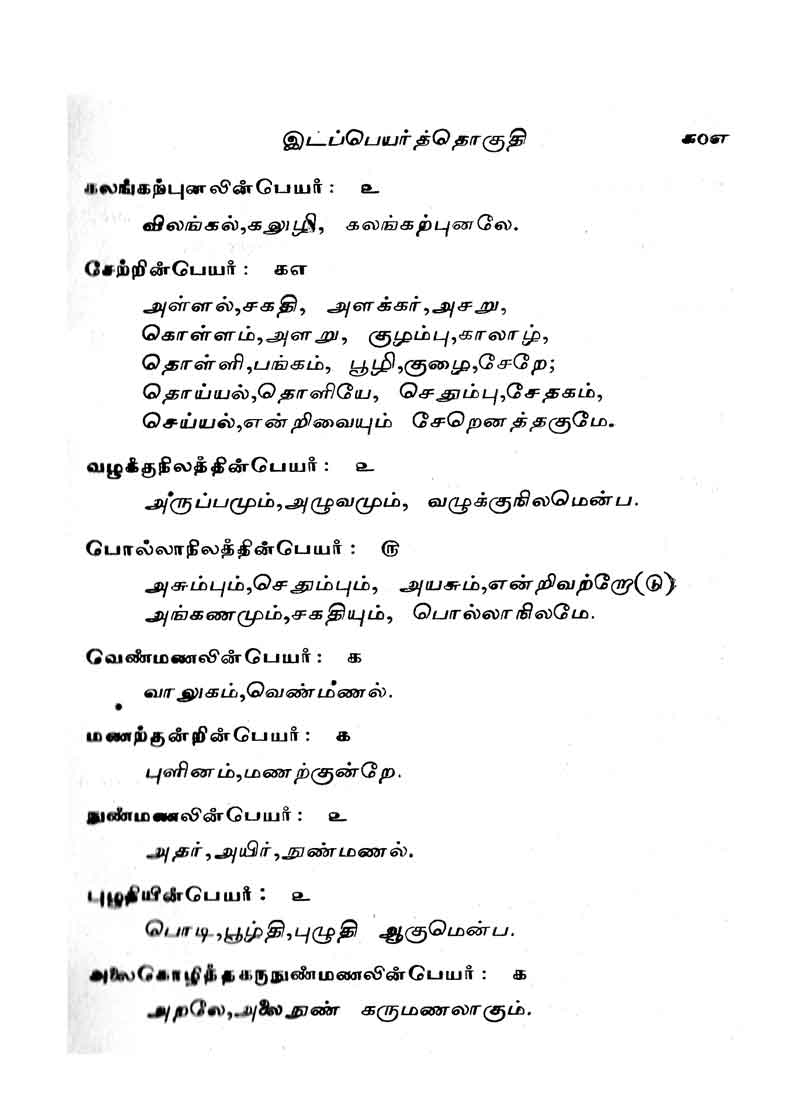 இடப்பெயர்த்தொகுதி க0௭
கலங்கற்புனலின்பெயர் : ௨
விலங்கல்,கலுழி, கலங்கற்புனலே.
சேற்றின்பெயர் : க௭
அள்ளல்,சகதி, அளக்கர்,அசறு,
கொள்ளம்,அளறு, குழம்பு,காலாழ்,
தொள்ளி,பங்கம், பூழி,குழை,சேறே;
தொய்யல்,தொளியே, செதும்பு,சேதகம்,
செய்யல்,என்றிவையும் சேறெனத்தகுமே.
வழுக்குநிலத்தின்பெயர் : ௨
அருப்பமும்,அழுவமும், வழுக்குநிலமென்ப.
பொல்லாநிலத்தின்பெயர் : ௫
அசும்பும்,செதும்பும், அயசும்,என்றிவற்றோ(டு)
அங்கணமும்,சகதியும், பொல்லாநிலமே.
வெண்மணலின்பெயர் : க
வாலுகம்,வெண்மணல்.
மணற்குன்றின்பெயர் : க
புளினம்,மணற்குன்றே.
நுண்மணலின்பெயர் : ௨
அதர்,அயிர்,நுண்மணல்.
புழுதியின்பெயர் : ௨
பொடி,பூழ்தி,புழுதி ஆகுமென்ப.
அலைகொழித்தகருநுண்மணலின்பெயர் : க
அறலே,அலைநுண் கருமணலாகும்.